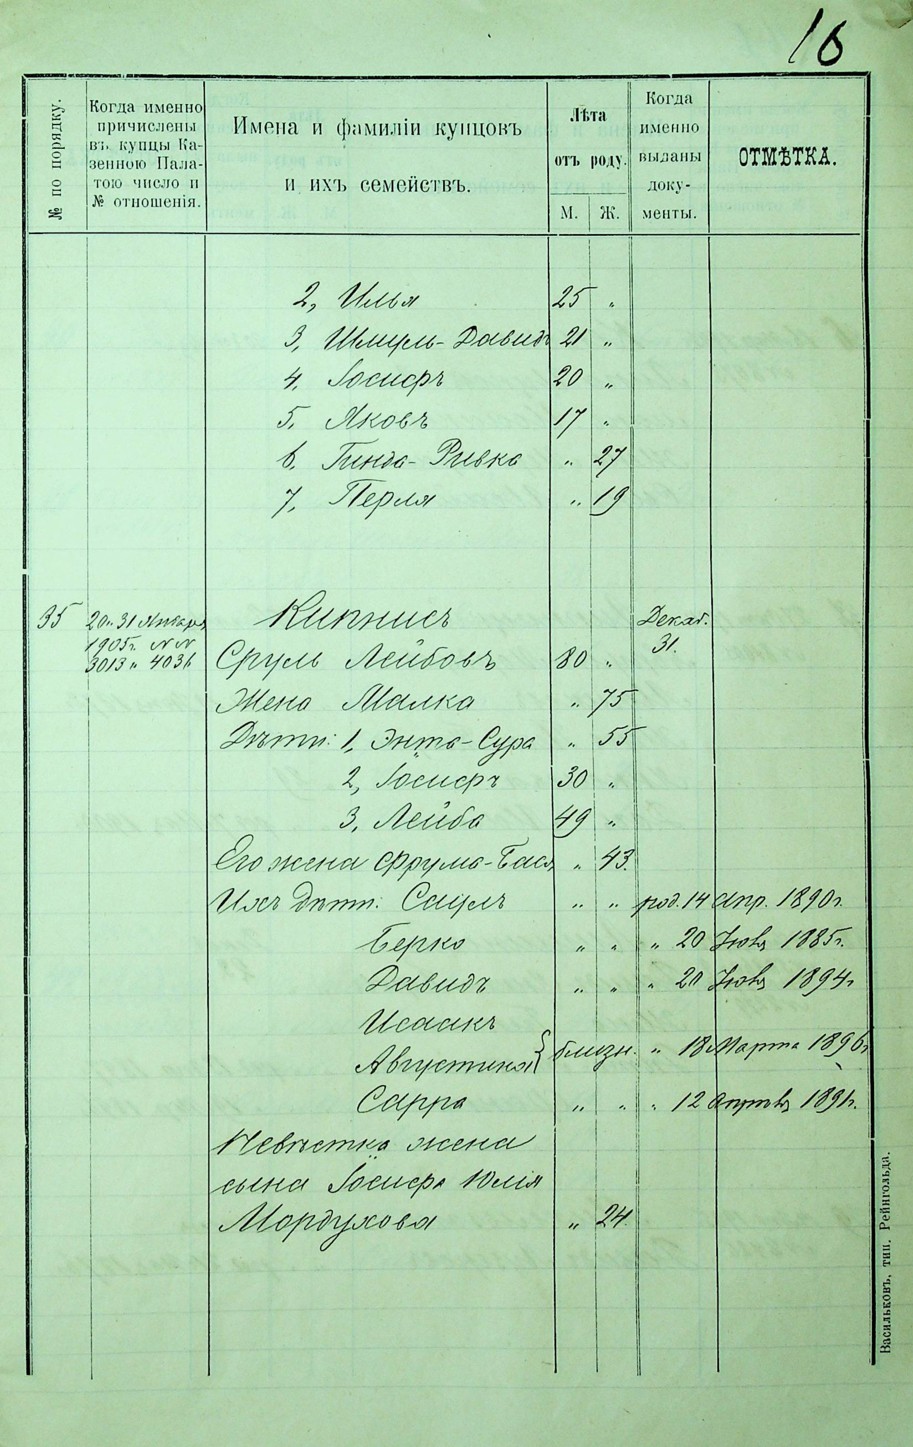 16
№ по порядку.
Когда именно
причислены
въ купцы Ка-
зенною Пала-
тою число и
№ отношенія.
Имена и фамиліи купцовъ
и ихъ семействъ.
Лѣта
отъ роду.
М. Ж.
Когда
именно
выданы
доку-
менты.
ОТМѢТКА.
2, Илья 25 "
3, Шмуль-Давидъ 21 "
4, Іосифъ 20 "
5, Яковъ 17 "
6, Гинда-Ривка " 27
7, Перля " 19
35 20 и 31 Января Кипнисъ Декаб.
1905г. №№ 31.
3013 и 4036 Сруль Лейбовъ 80 "
Жена Малка " 75
Дѣти: 1, Энта-Сура " 55
2, Іосифъ 30 "
3, Лейба 49 "
Его жена Фрума-Бася " 43.
Ихъ дѣти: Саулъ " " род. 14 Апр. 1890г.
Берко " " " 20 Іюня 1885г.
Давидъ " " " 20 Іюня 1894г
Исаакъ
Августина } близн. " 18 Марта 1896г
Сарра " " " 12 Апрѣля 1891г.
Невѣстка жена
сына Іосифа Юлія
Мордухова " 24
Васильковъ, тип. Рейнгольда.